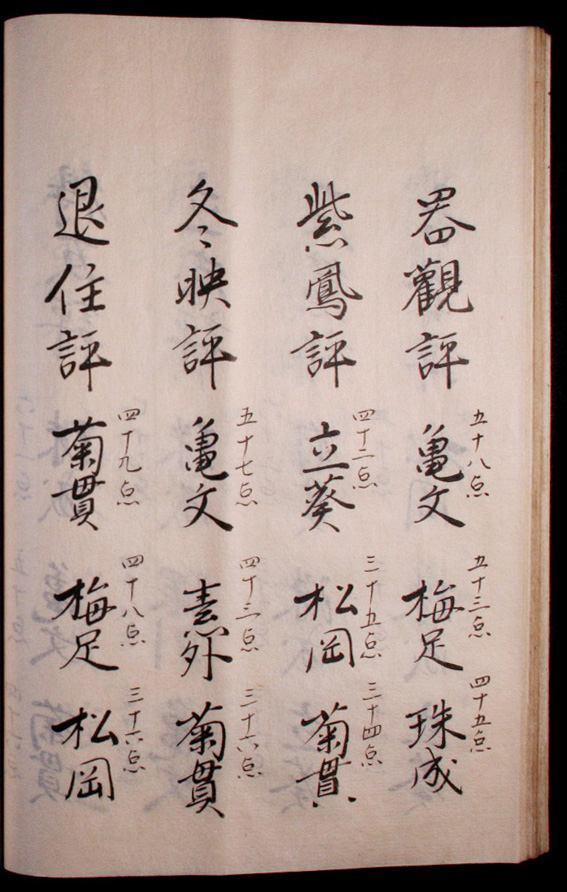 五十八点 五十三点 四十五点
畧觀評 亀文 梅足 珠成
四十二点 三十五点 三十四点
紫鳳評 立葵 松岡 菊貫
五十七点 四十三点 三十六点
冬映評 亀文 外 菊貫
四十九点 四十八点 三十六点
退住評 菊貫 梅足 松岡